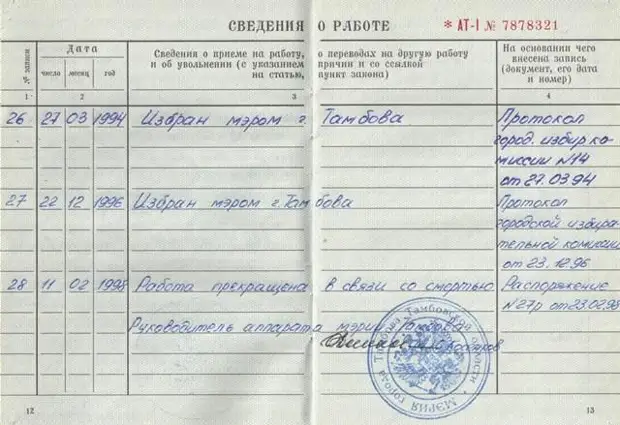 СВЕДЕНИЯ О РАБОТЕ * АТ-I № 7878321
№ записи
Дата
число месяц год
Сведения о приеме на работу, о переводах на другую работу
и об увольнении (с указанием причин и со ссылкой
на статью, пункт закона)
На основании чего
внесена запись
(документ, его дата
и номер)
1 2 3 4
26 27 03 1994 Избран мэром г. Тамбова Протокол
город. избир ко-
миссии N14
от 27.03.94
27 22 12 1996 Избран мэром г. Тамбова Протокол
городской избира-
тельной комиссии
от 23.12.96
28 11 02 1998 Работа прекращена в связи со смертью Распоряжение
N27р от 23.02.98
Руководитель аппарата мэрии Тамбова
МЭРИЯ города Тамбова Тамбовской области
12 13